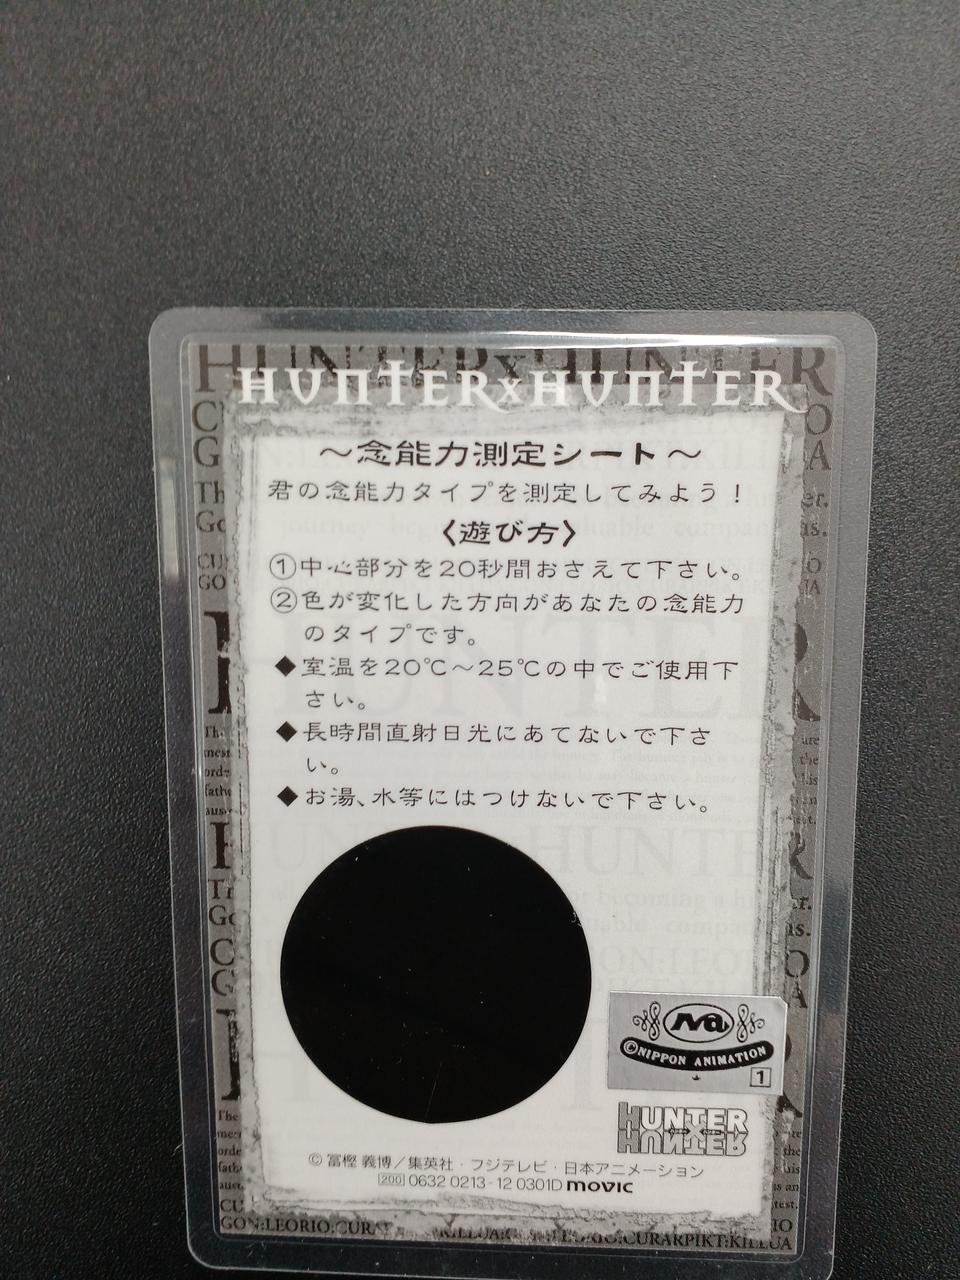 HUNTER×HUNTER
～念能力測定シート～
君の念能力タイプを測定してみよう！
〈遊び方〉
①中心部分を20秒間おさえて下さい。
②色が変化した方向があなたの念能力
のタイプです。
◆室温を20℃～25℃の中でご使用下
さい。
◆長時間直射日光にあてないで下さ
い。
◆お湯、水等にはつけないで下さい。
©NIPPON ANIMATION
1
HUNTER
HUNTER
© 冨樫 義博／集英社・フジテレビ・日本アニメーション
200 0632 0213-12 0301D movic